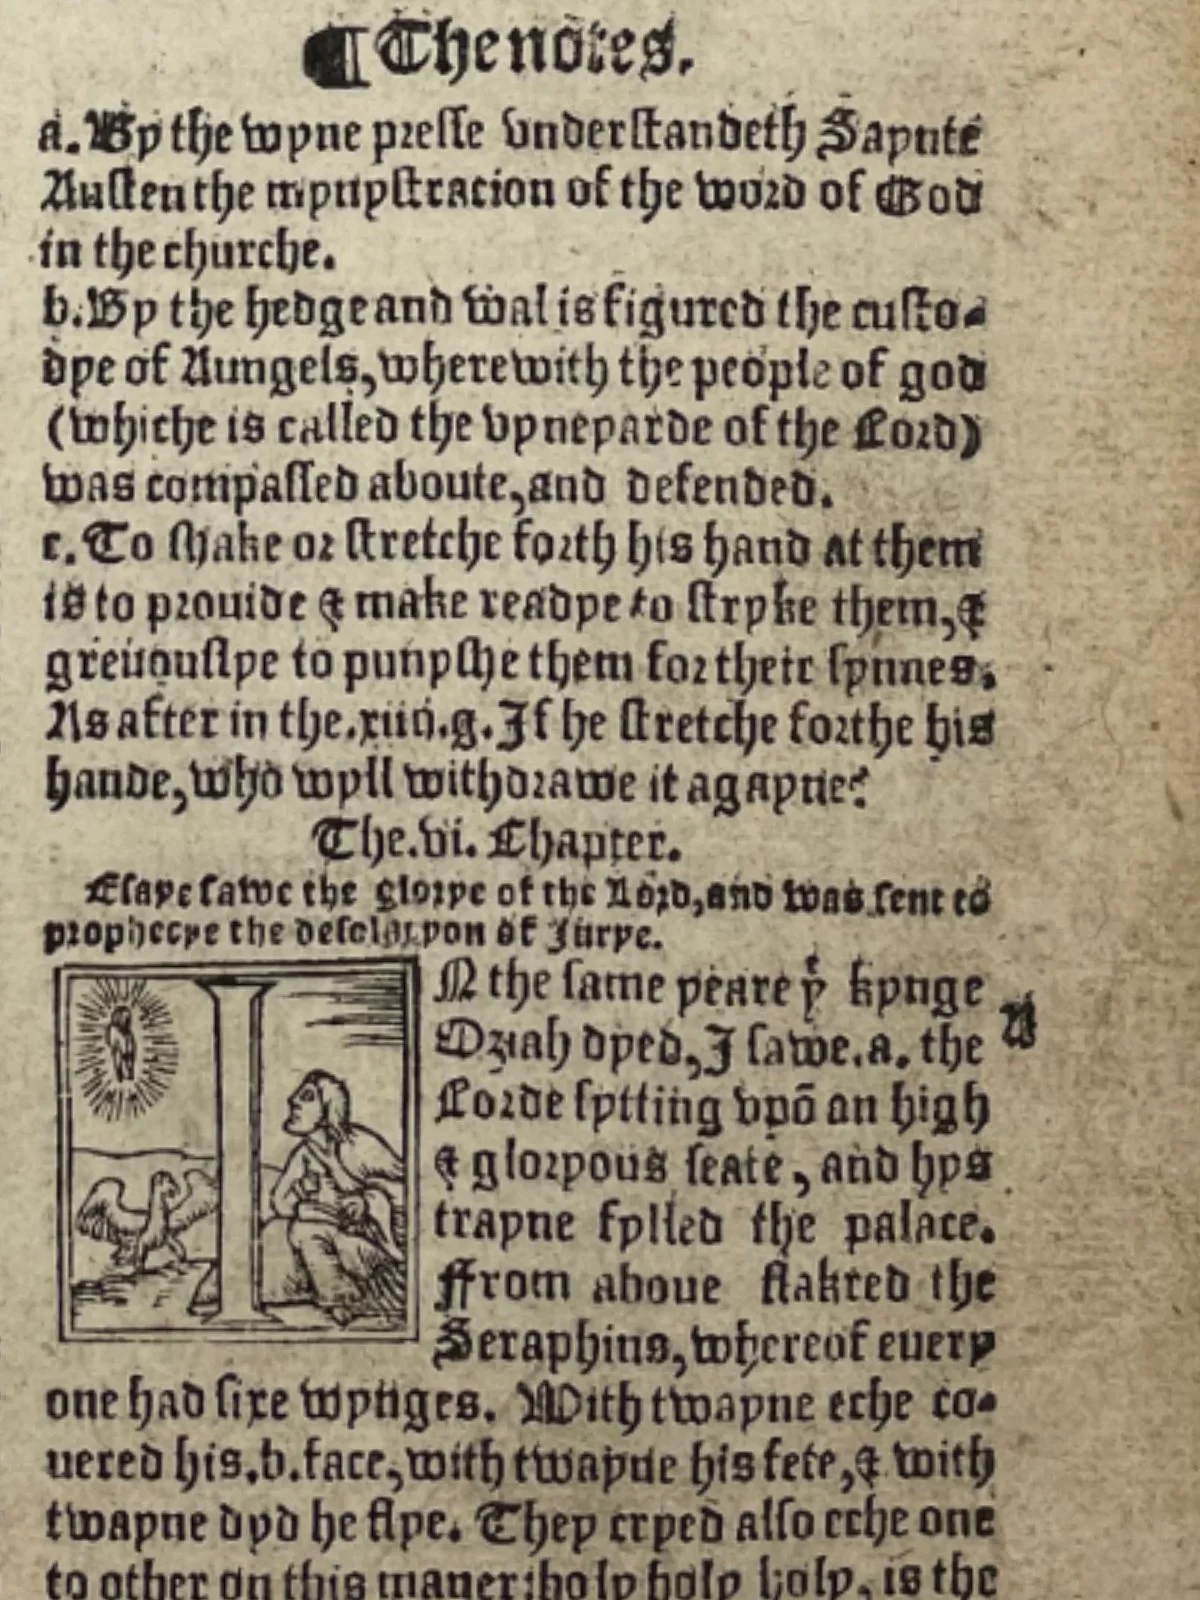 ¶ The notes.
a. By the wyne presse vnderstandeth Saynte
Austen the mynystracion of the word of God
in the churche.
b. By the hedge and wal is figured the custo-
dye of Aungels, wherewith the people of god
(whiche is called the vyneyarde of the Lord)
was compassed aboute, and defended.
c. To shake or stretche forth his hand at them
is to prouide & make readye to stryke them, &
greuously to punyshe them for their synnes.
As after in the .xiiii.g. If he stretche forthe his
hande, who wyll withdrawe it agayne?
The .vi. Chapter.
Esaye sawe the glorye of the Lord, and was sent to
prophecye the desolacyon of Jurye.
IN the same yeare yͭ kynge
Oziah dyed, I sawe .a. the
Lorde syttiing vpō an high
& gloryous seate, and hys
trayne fylled the palace.
From aboue flakred the
Seraphins, whereof euery
A
one had sixe wynges. With twayne eche co-
uered his .b. face, with twayne his fete, & with
twayne dyd he flye. They cryed also eche one
to other on this maner: holy holy holy, is the